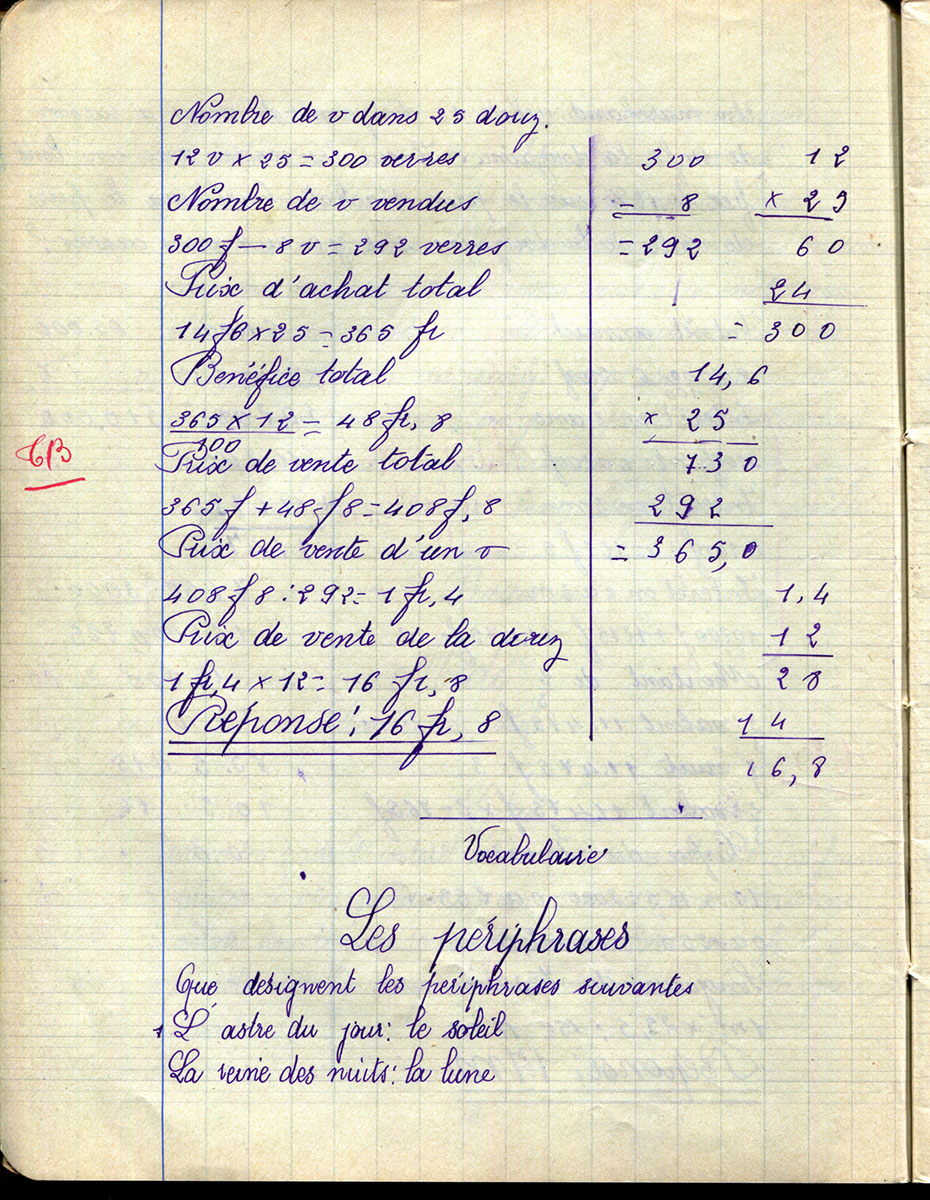 Nombre de v dans 25 douz.
12 v × 25 = 300 verres
Nombre de v vendus
300 f — 8 v = 292 verres
Prix d'achat total
14 f 6 × 25 = 365 fr
Bénéfice total
365 × 12 = 48 fr, 8
300
Prix de vente total
365 f + 48 f 8 = 408 f, 8
Prix de vente d'un v
408 f 8 : 292 = 1 fr, 4
Prix de vente de la douz
1 fr, 4 × 12 = 16 fr, 8
Réponse : 16 fr, 8
TB
300
— 8
= 292
12
× 25
60
24
= 300
14,6
× 25
730
292
= 365,0
1,4
12
28
14
16,8
Vocabulaire
Les périphrases
Que désignent les périphrases suivantes
L'astre du jour : le soleil
La reine des nuits : la lune